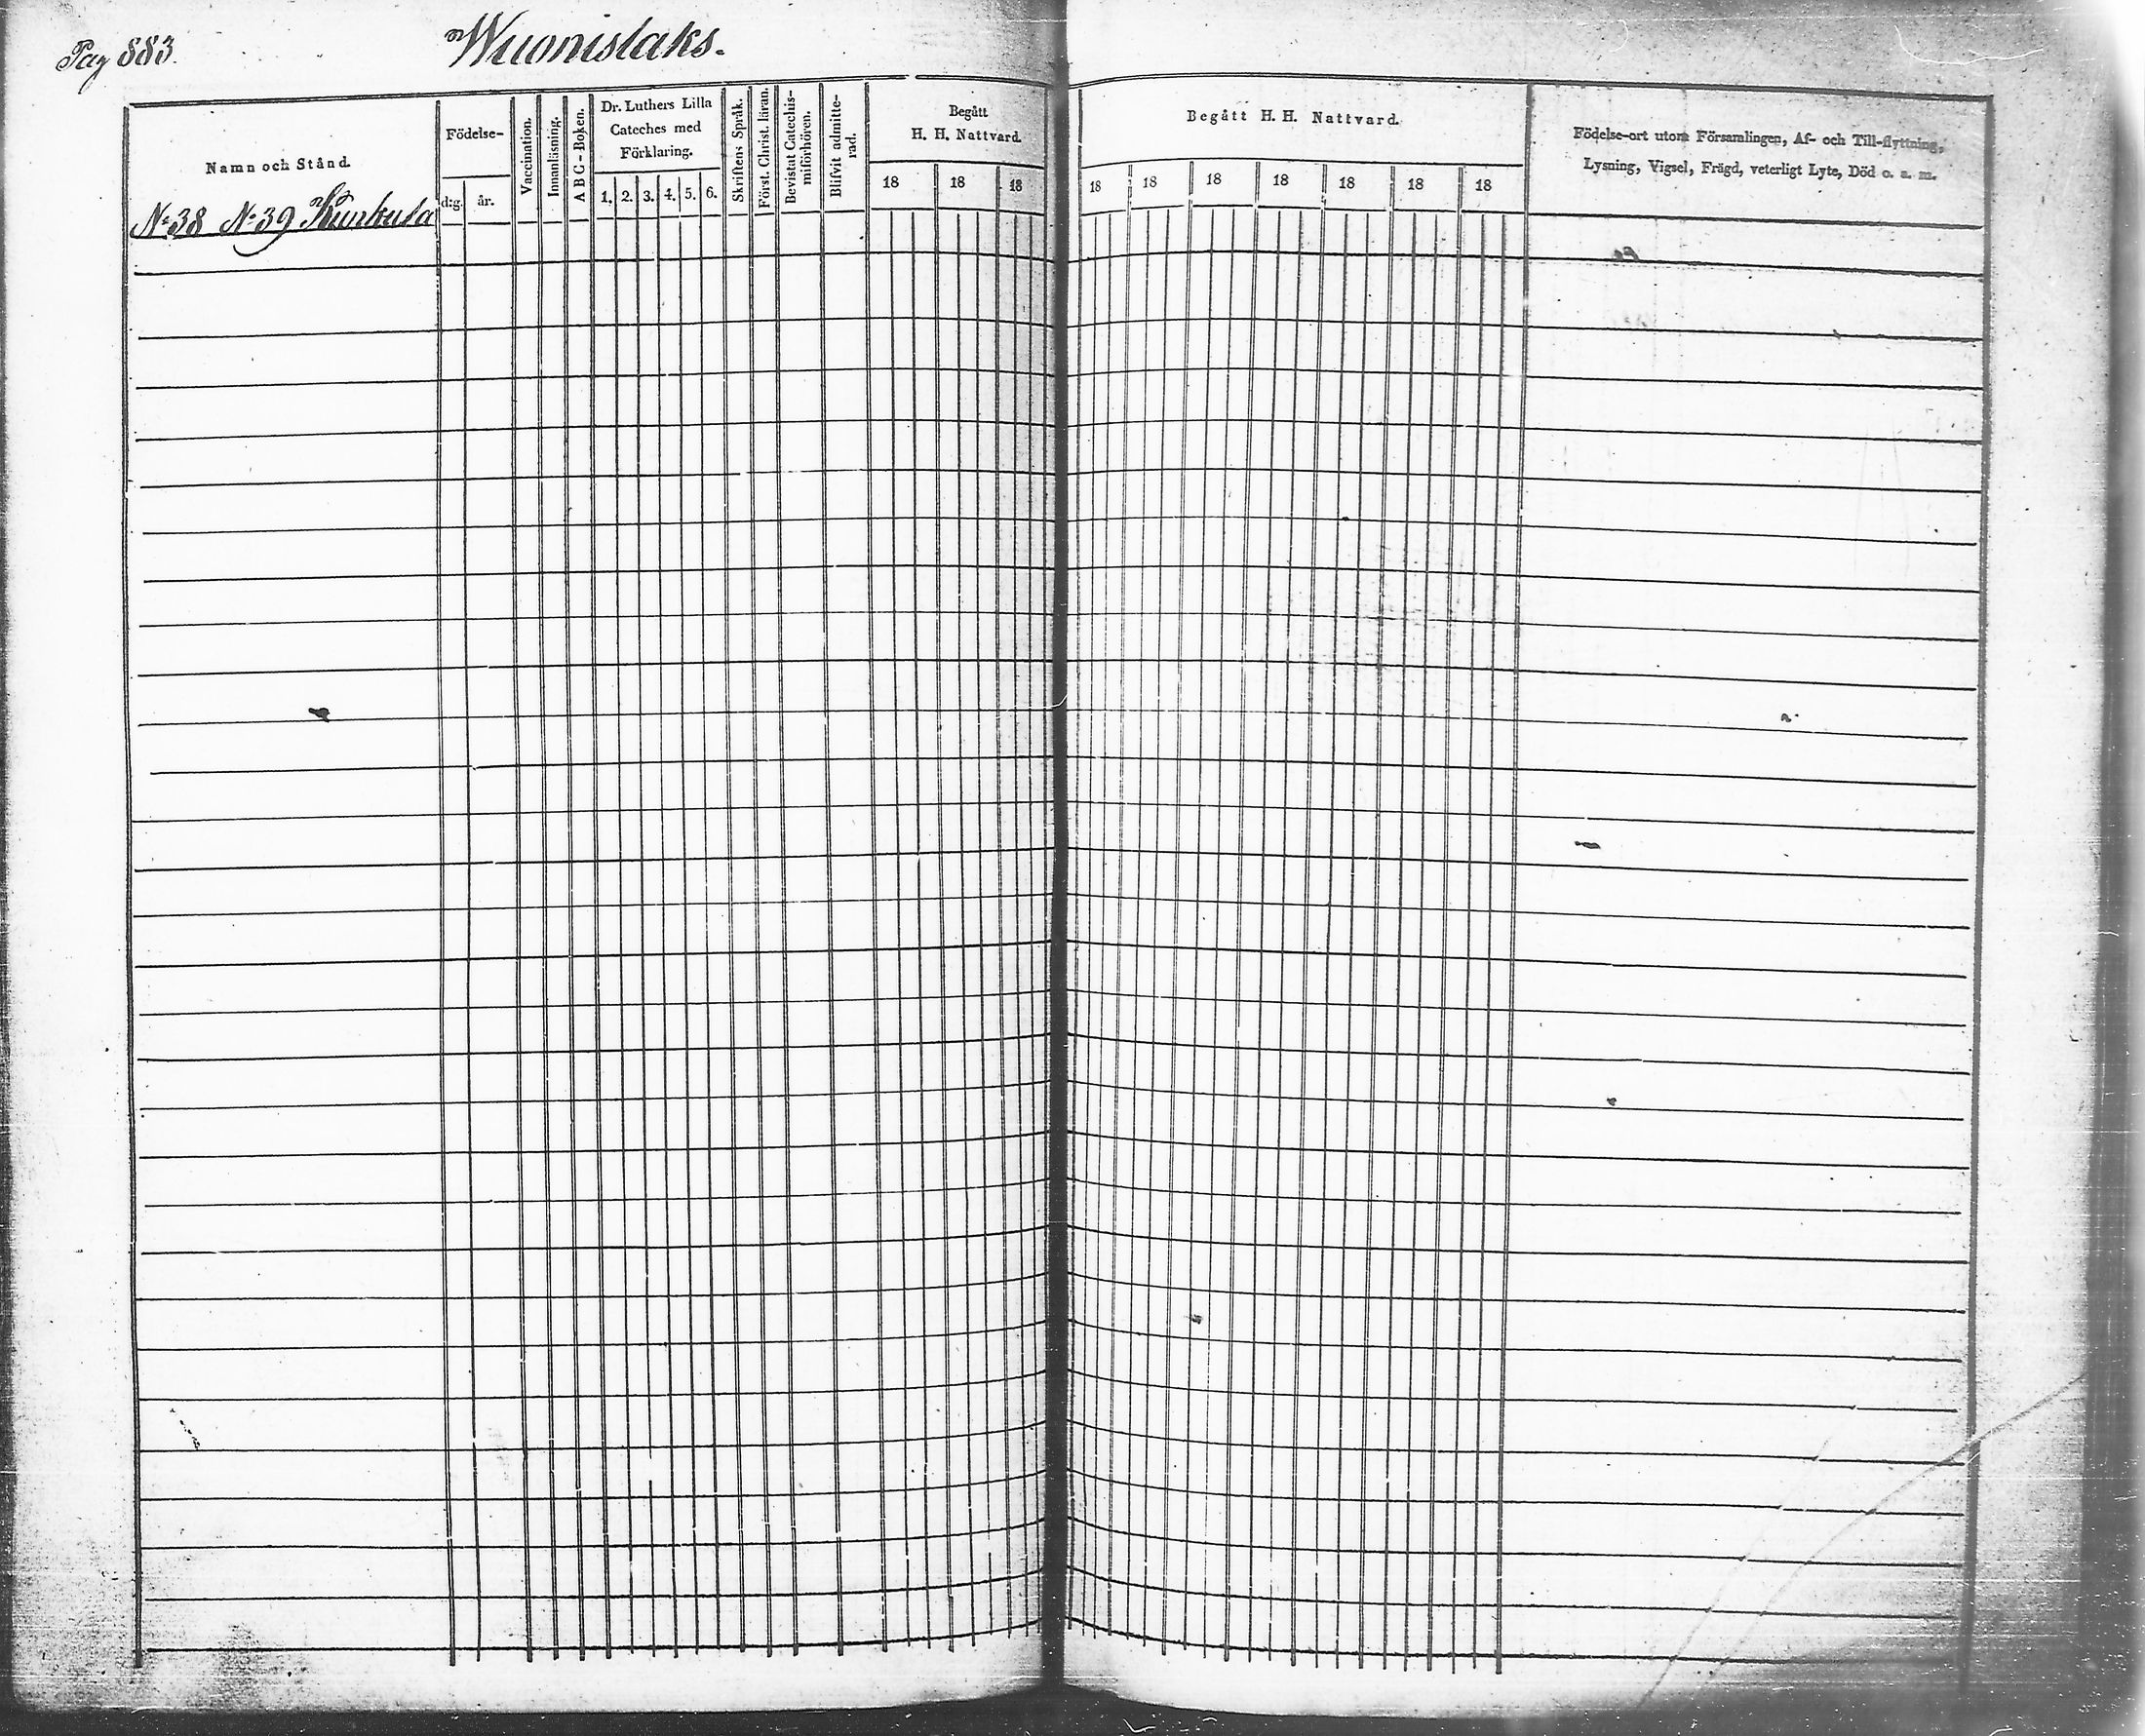 Pag 883.
Wuonislaks.
Namn och Stånd.
Födelse-
d:g.
år.
Vaccination.
Innanläsning.
ABC-Boken.
Dr. Luthers Lilla
Cateches med
Förklaring.
1. 2. 3. 4. 5. 6.
Skriftens Språk.
Först. Christ. läran.
Bevistat Catechis-
miförhören.
Blifvit admitte-
rad.
Begått
H. H. Nattvard.
18 18 18
Begått H. H. Nattvard.
18 18 18 18 18 18 18
Födelse-ort utom Församlingen, Af- och Till-flyttning,
Lysning, Vigsel, Frägd, veterligt Lyte, Död o. s. m.
No 38 No 39 Kurkula